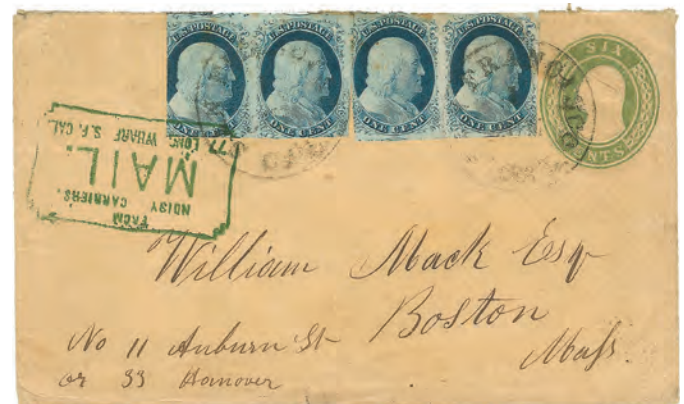 U.S. POSTAGE U.S. POSTAGE U.S. POSTAGE U.S. POSTAGE
ONE CENT ONE CENT ONE CENT ONE CENT
SIX
CENTS
FROM
NOISY CARRIERS.
MAIL.
77 LONG WHARF S.F. CAL
William Mack Esq
Boston
Mass.
No 11 Auburn St
or 33 Hanover